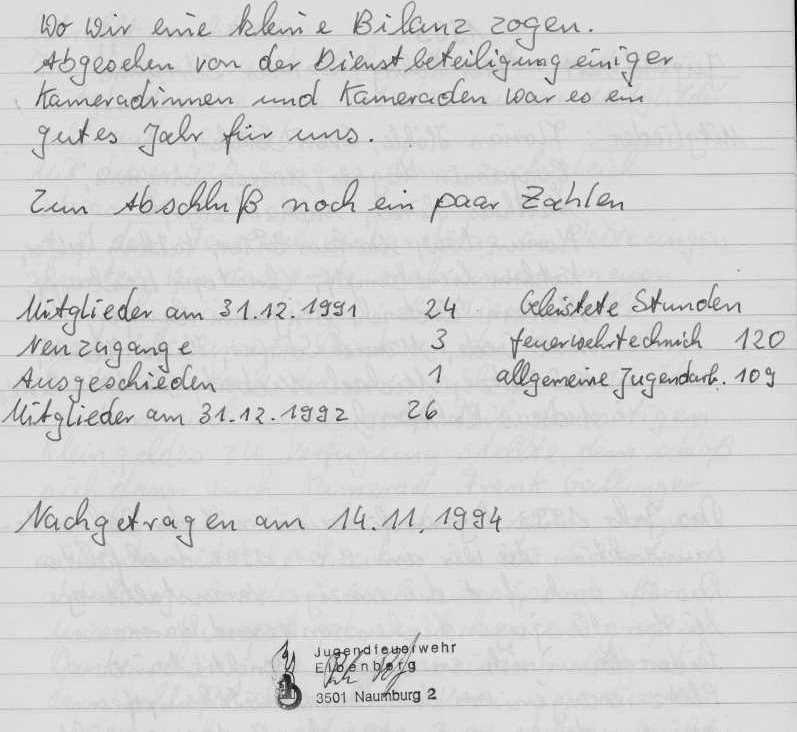 Wo wir eine kleine Bilanz zogen.
Abgesehen von der Dienstbeteiligung einiger
Kameradinnen und Kameraden war es ein
gutes Jahr für uns.
Zum Abschluß noch ein paar Zahlen
Mitglieder am 31.12.1991 24 Geleistete Stunden
Neuzugange 3 feuerwehrtechnich 120
Ausgeschieden 1 allgemeine Jugendarb. 109
Mitglieder am 31.12.1992 26
Nachgetragen am 14.11.1994
Jugendfeuerwehr
Elbenberg
3501 Naumburg 2